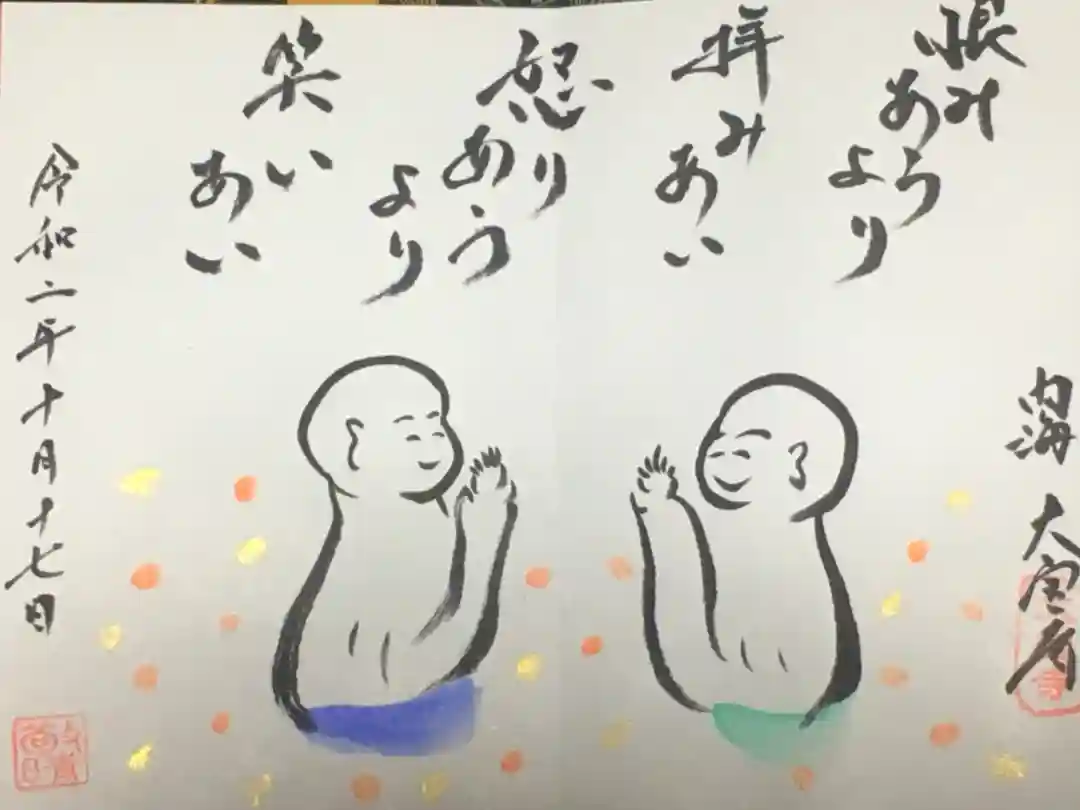 恨み
あう
より
拝み
あい
怒り
あう
より
笑い
あい
内海 大宝寺
令和二年十月十七日